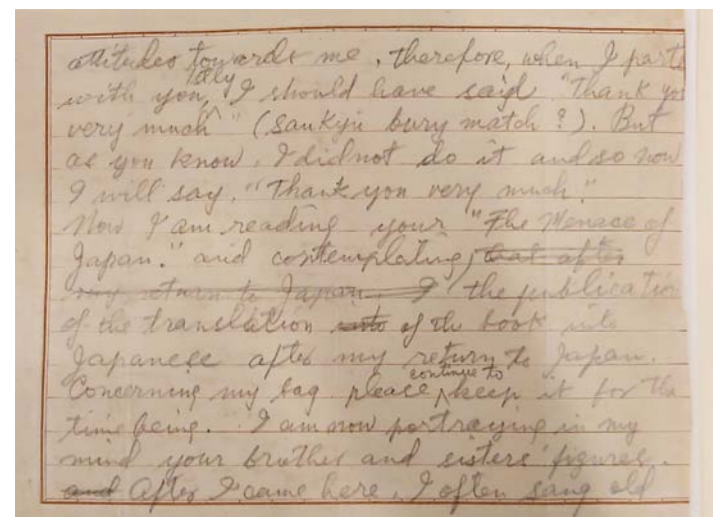 attitudes towards me. therefore, when I part
with you, I should have said "Thank you
very much" (saukyu bury match?). But
as you know. I did not do it and so now
I will say. "Thank you very much."
Now I am reading your "The Menace of
Japan." and contemplating, that after
my return to Japan. I the publication
of the translation into of the book into
Japanese after my return to Japan.
Concerning my bag please continue to keep it for the
time being. I am now portraying in my
mind your brother and sisters' figures.
and After I came here, I often sang old